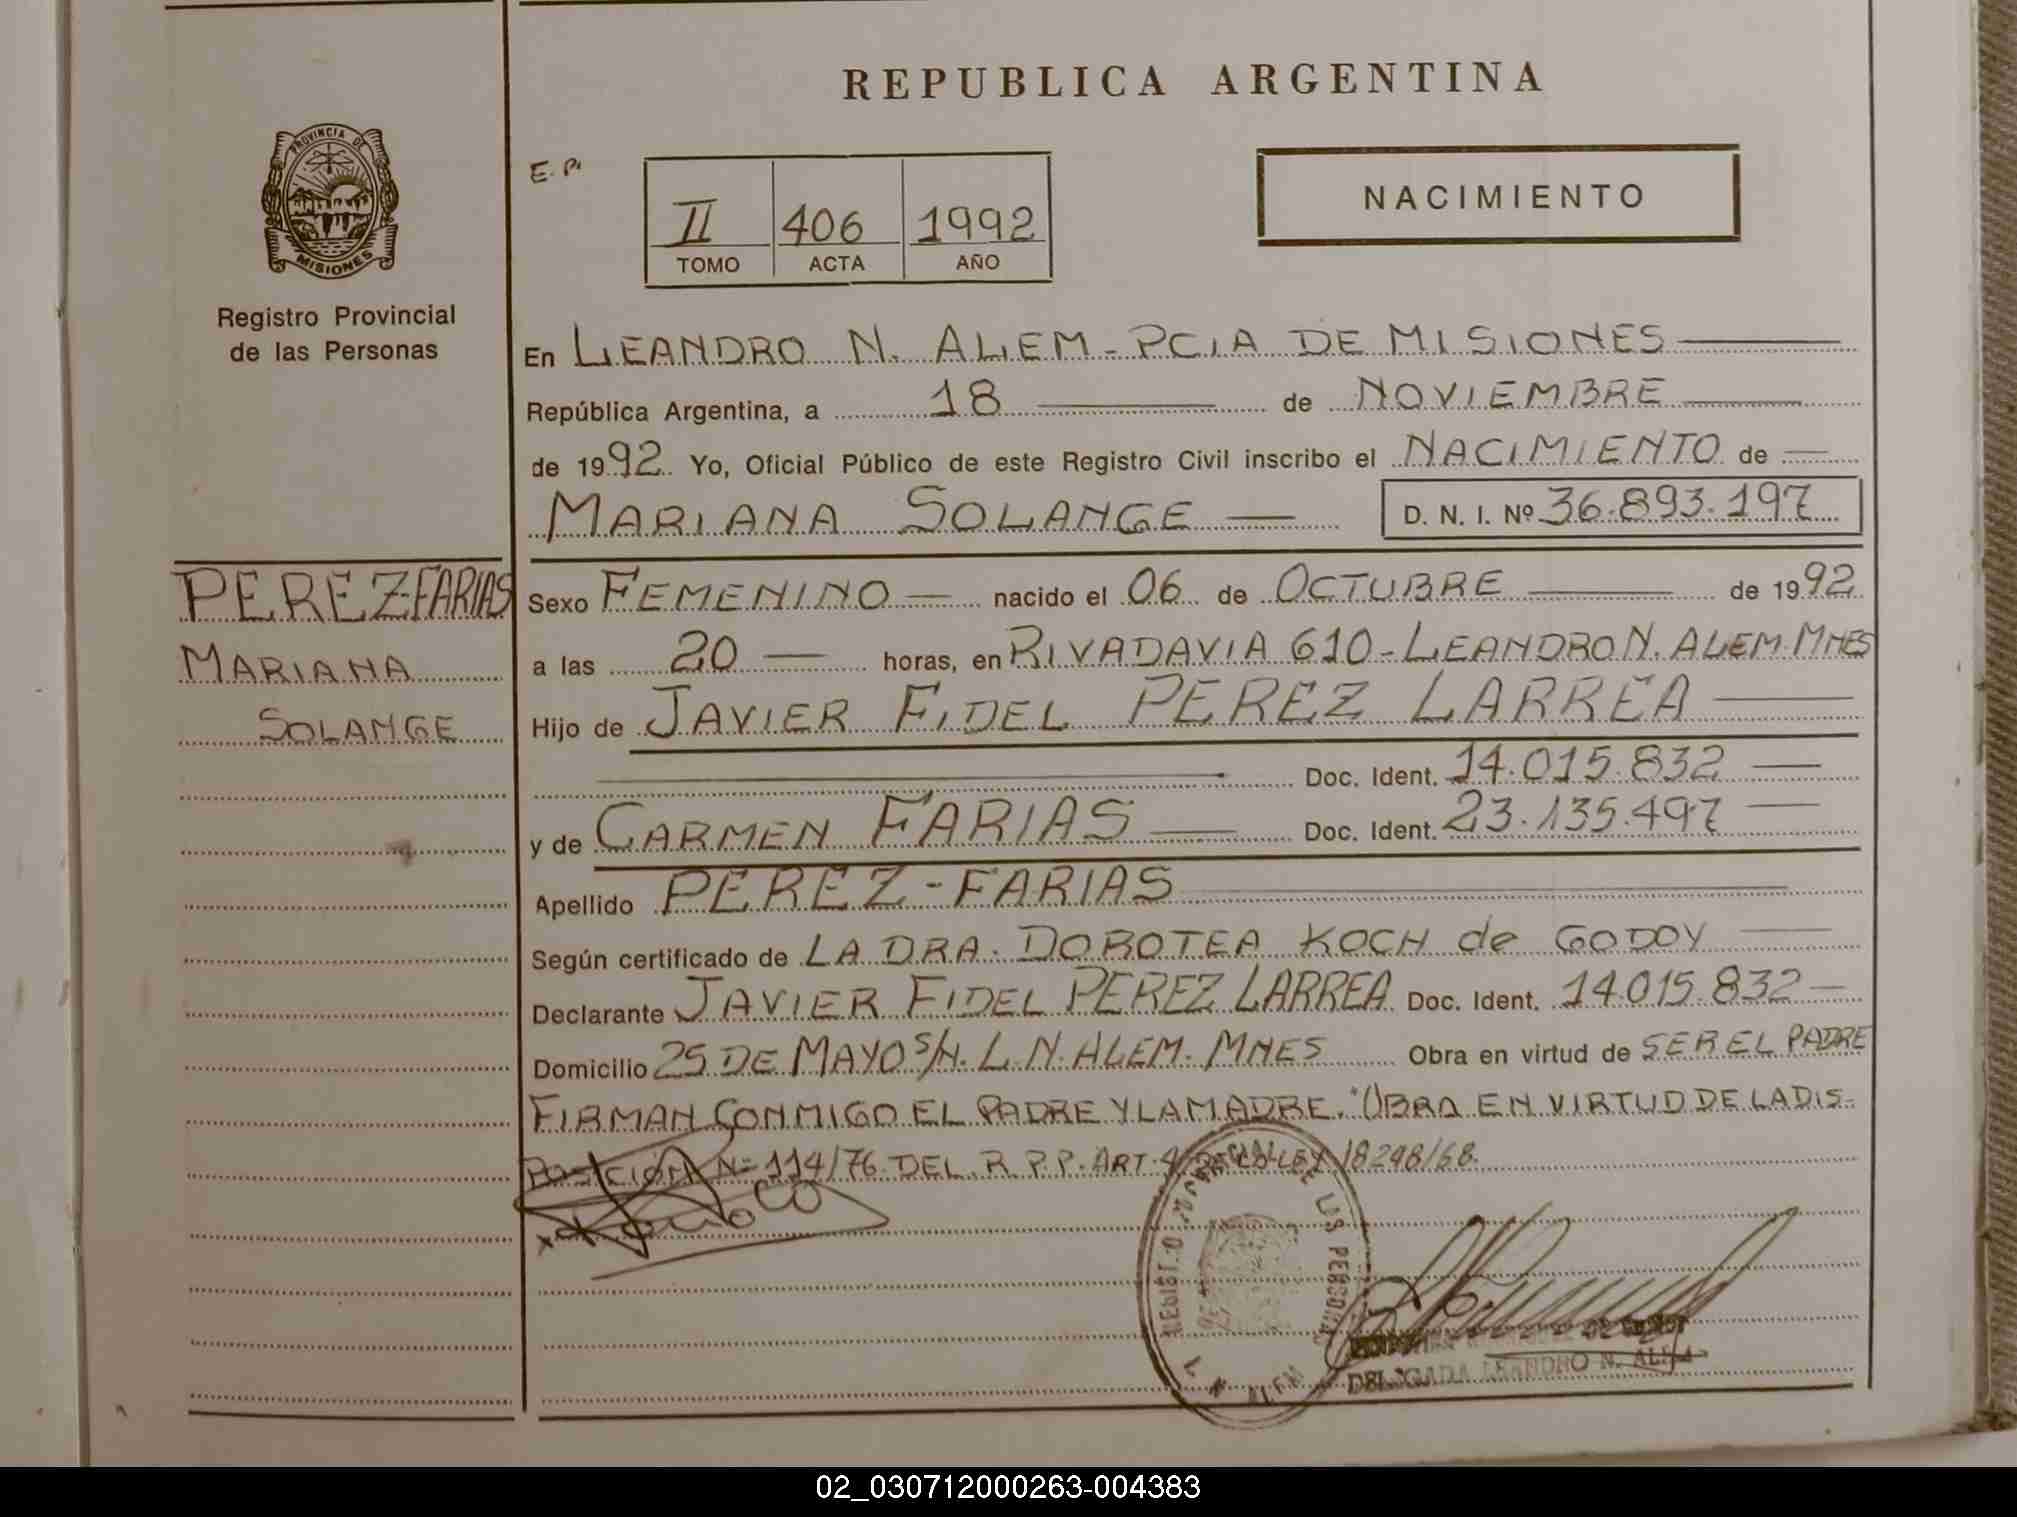 REPUBLICA ARGENTINA
PROVINCIA DE
MISIONES
Registro Provincial
de las Personas
E.P.
II 406 1992
TOMO ACTA AÑO
NACIMIENTO
En LEANDRO N. ALEM - PCIA DE MISIONES
República Argentina, a 18 de NOVIEMBRE
de 1992 Yo, Oficial Público de este Registro Civil inscribo el NACIMIENTO de
MARIANA SOLANGE D. N. I. Nº 36.893.197
PEREZ-FARIAS
MARIANA
SOLANGE
Sexo FEMENINO nacido el 06 de OCTUBRE de 1992
a las 20 horas, en RIVADAVIA 610 - LEANDRO N. ALEM MNES
Hijo de JAVIER FIDEL PEREZ LARREA
Doc. Ident. 14.015.832
y de CARMEN FARIAS Doc. Ident. 23.135.497
Apellido PEREZ - FARIAS
Según certificado de LA DRA. DOROTEA KOCH de GODOY
Declarante JAVIER FIDEL PEREZ LARREA Doc. Ident. 14.015.832
Domicilio 25 DE MAYO S/N. L.N. ALEM. MNES Obra en virtud de SER EL PADRE
FIRMAN CONMIGO EL PADRE Y LA MADRE. "OBRA EN VIRTUD DE LA DIS-
POSICIÓN Nº 114/76 DEL R.P.P. ART. 4 LEY 18248/68.
DE LAS PERSONAS
L. N. ALEM
DELEGADA LEANDRO N. ALEM
02_030712000263-004383